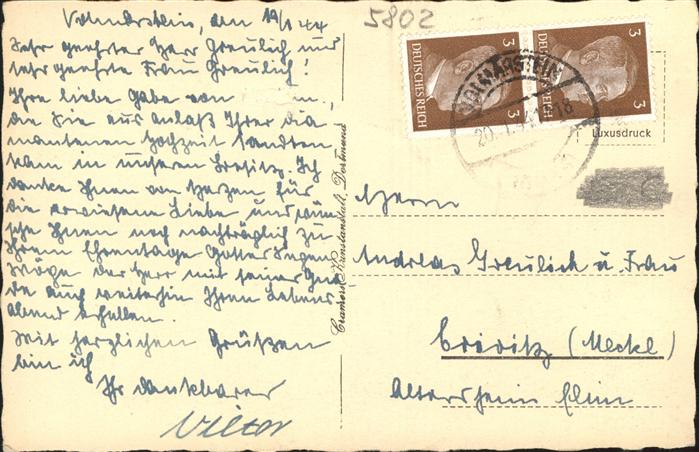 Volmarstein, den 19/1 44
Sehr geehrter Herr Greulich und
sehr geehrte Frau Greulich!
Ihre liebe Gabe von
die Sie aus Anlaß Ihrer dia-
mantenen Hochzeit sandten,
kam in unseren Besitz. Ich
danke Ihnen von Herzen für
die erwiesene Liebe und wün-
sche Ihnen noch nachträglich zu
Ihrem Ehrentage Gottes Segen.
Möge der Herr mit seiner Gna-
de auch weiterhin Ihren Lebens-
abend erhellen.
Mit herzlichen Grüßen
bin ich
Ihr dankbarer
Cramers Kunstanstalt, Dortmund
5802
DEUTSCHES REICH 3 3
DEUTSCHES REICH 3 3
VOLMARSTEIN
20.1.44.18
Luxusdruck
Herrn
Andreas Greulich u. Frau
Crivitz (Meckl)
Altersheim Elim